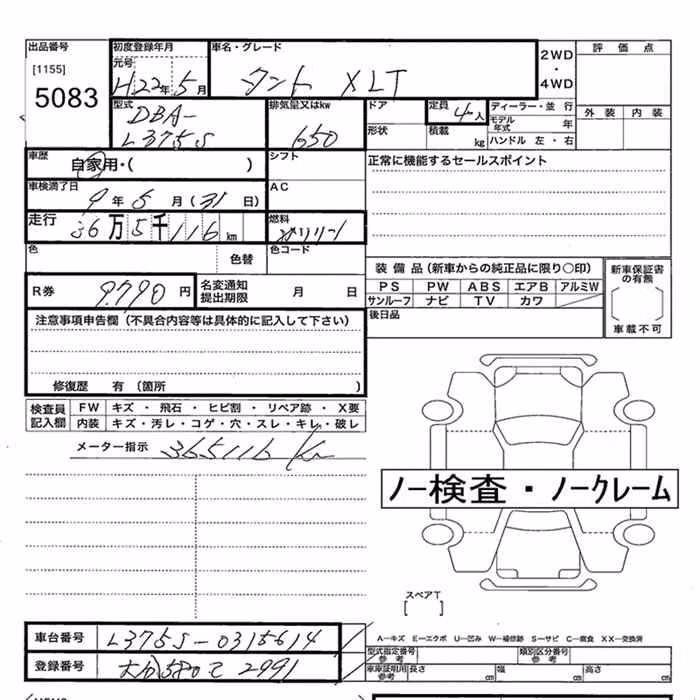 出品番号 初度登録年月 車名・グレード 2WD 評価点
[1155] 元号 ・
5083 H22年5月 タント XLT 4WD
型式 排気量又はkw ドア 定員 4人 ディーラー・並行 外装 内装
DBA- モデル年式 年
L375S 650 形状 積載 kg ハンドル 左・右
車歴 自家用・( ) シフト 正常に機能するセールスポイント
車検満了日 AC
9年5月(31日)
走行 36万5千116km 燃料 ガソリン
色 色替 色コード
装備品(新車からの純正品に限り○印) 新車保証書の有無
R券 9.790円 名変通知提出期限 月 日 PS PW ABS エアB アルミW
サンルーフ ナビ TV カワ
注意事項申告欄(不具合内容等は具体的に記入して下さい) 後日品 車載不可
修復歴 有(箇所 )
検査員記入欄 FW キズ・飛石・ヒビ割・リペア跡・X要
内装 キズ・汚レ・コゲ・穴・スレ・キレ・破レ
メーター指示 365116 Km
ノー検査・ノークレーム
スペアT
[ ]
A—キズ E—エクボ U—凹み W—補修跡 S—サビ C—腐食 XX—交換済
車台番号 L375S-0315614 型式指定番号 参考 類別区分番号 参考
登録番号 580 2991 車庫証明用 参考 長さ cm 幅 cm 高さ cm